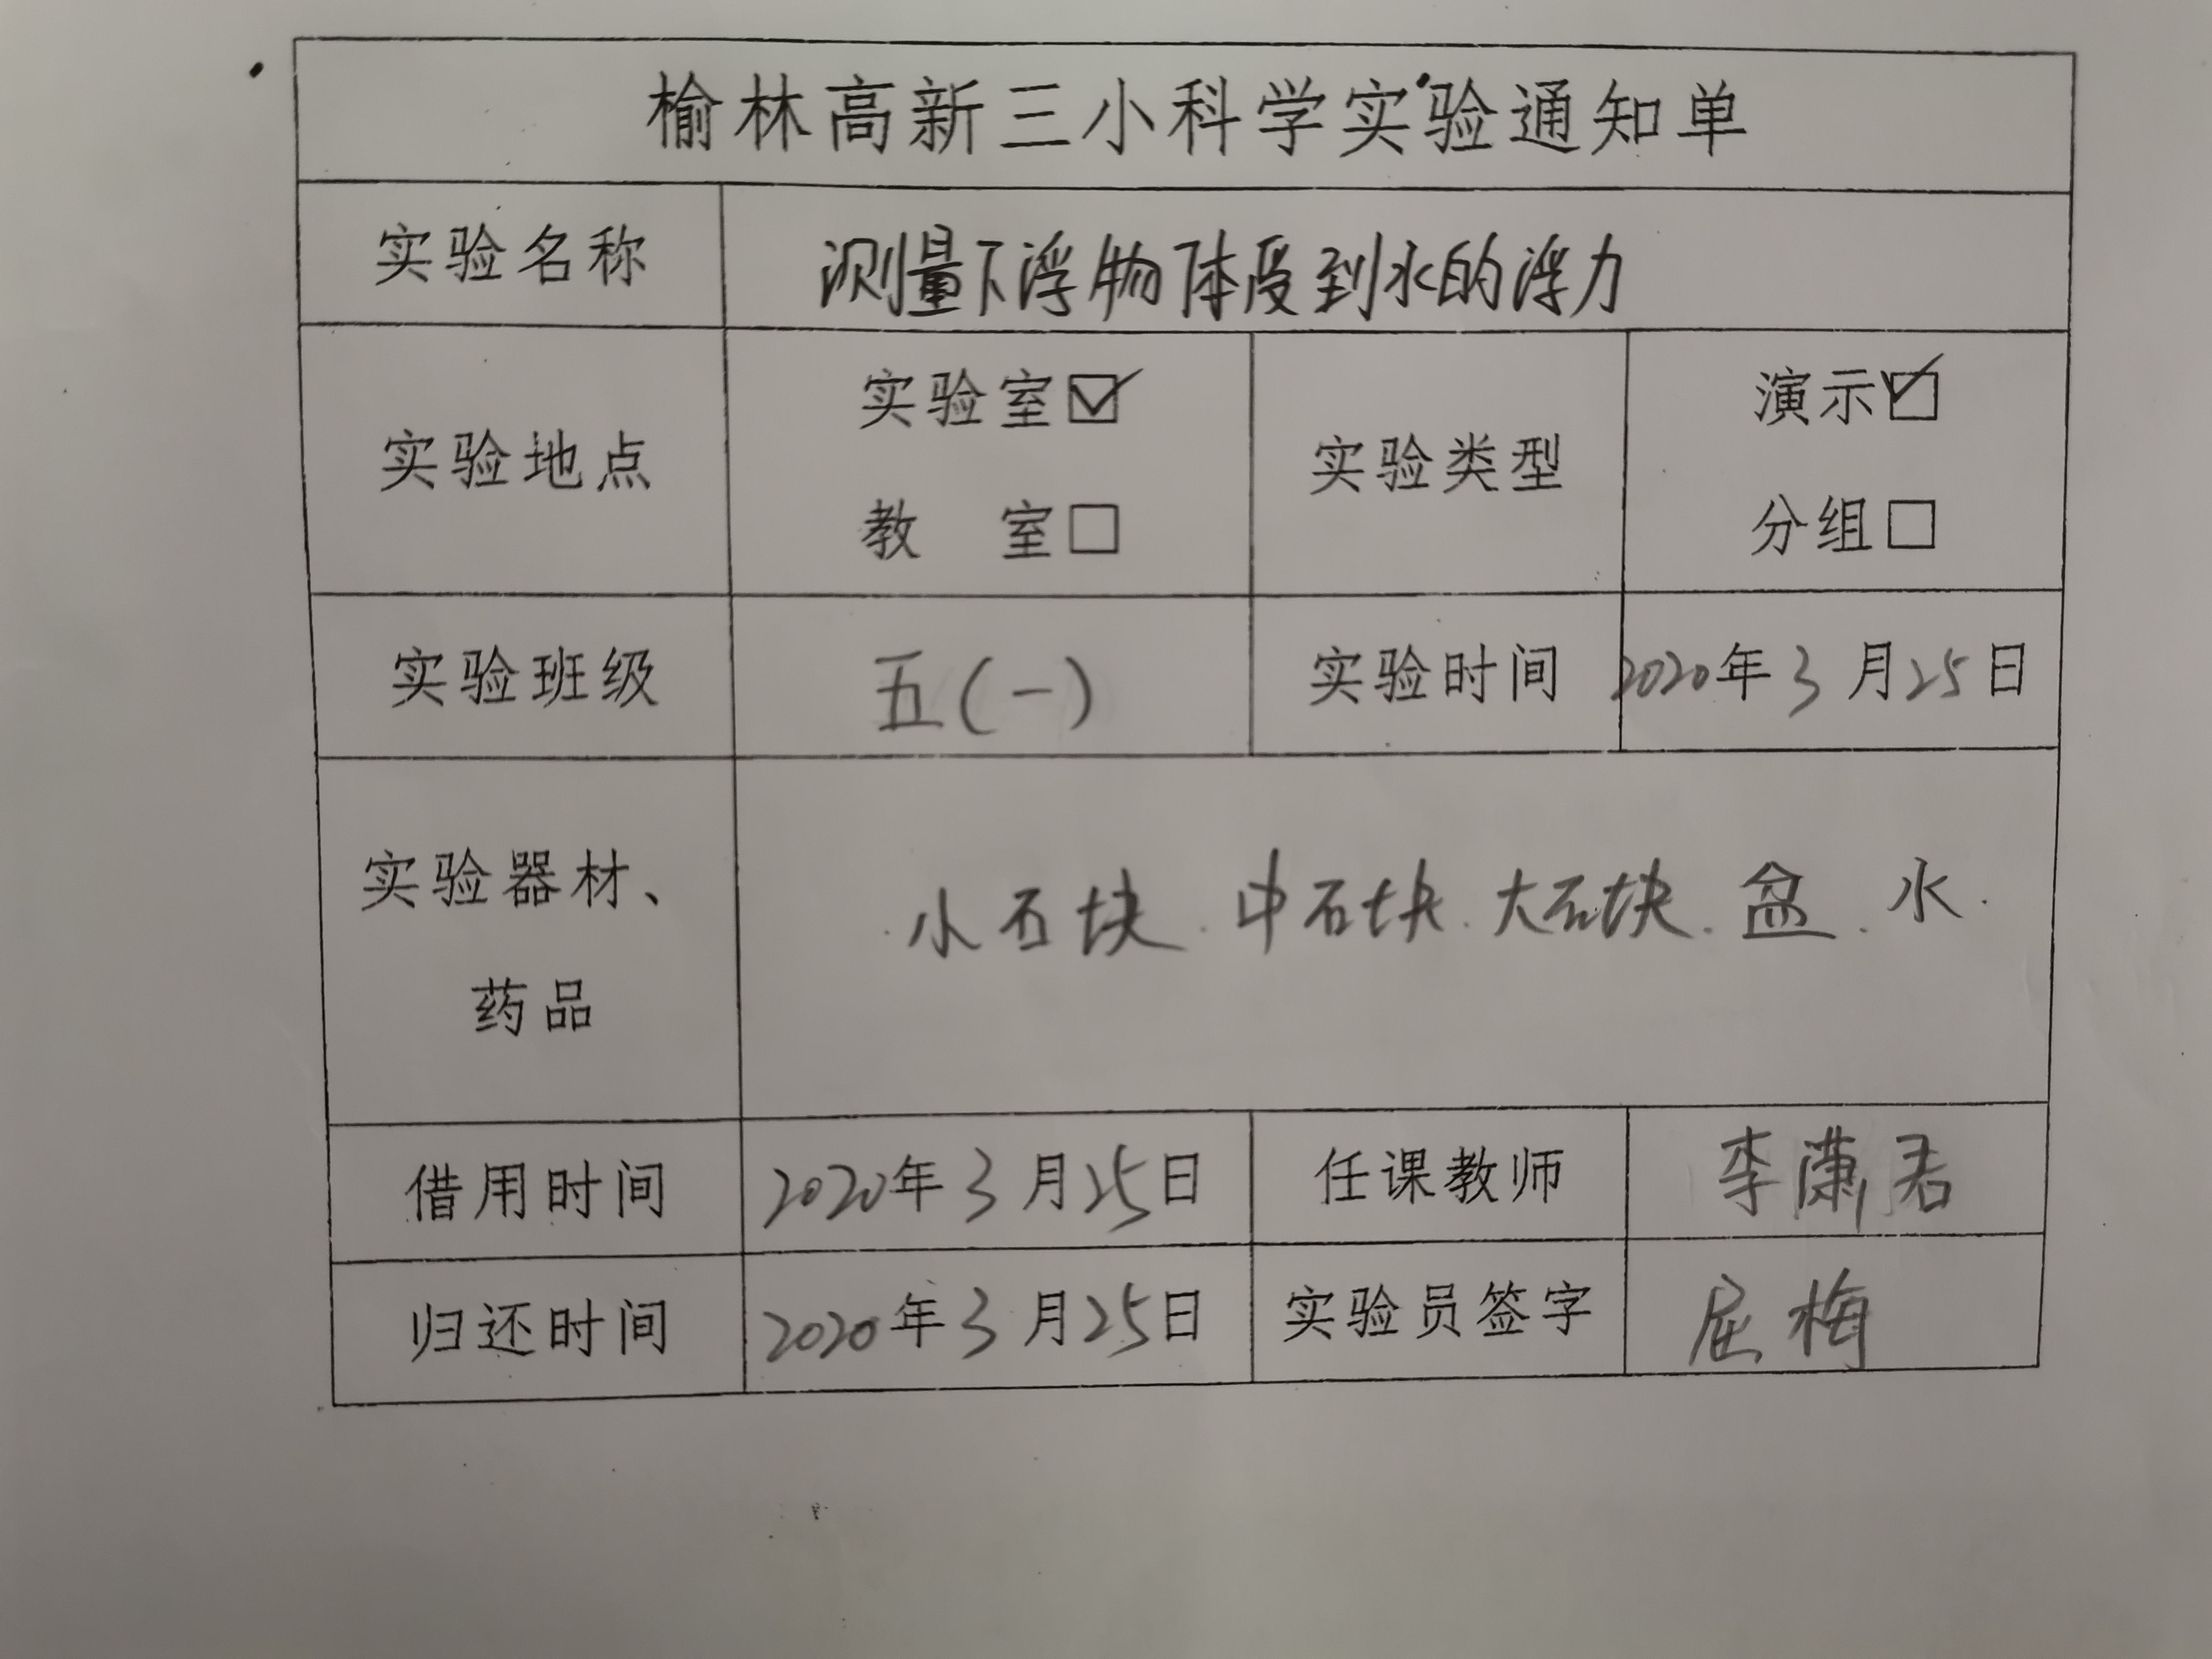 榆林高新三小科学实验通知单
实验名称 测量下浮物体受到水的浮力
实验地点 实验室☑ 教 室□ 实验类型 演示☑ 分组□
实验班级 五(一) 实验时间 2020年3月25日
实验器材、药品 小石块.中石块.大石块.盆.水.
借用时间 2020年3月25日 任课教师 李潇君
归还时间 2020年3月25日 实验员签字 屈梅